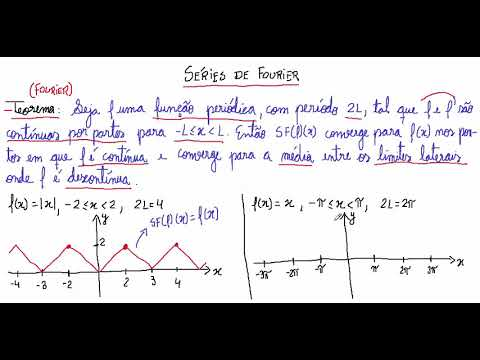 SÉRIES DE FOURIER
(FOURIER)
Teorema: Seja f uma função periódica, com período 2L, tal que f e f' são
contínuas por partes para -L≤x<L. Então SF(f)(x) converge para f(x) nos pon-
tos em que f é contínua e converge para a média entre os limites laterais
onde f é descontínua.
f(x)=|x|, -2≤x<2, 2L=4
f(x)=x, -π≤x<π, 2L=2π
y
SF(f)(x)=f(x)
y
2
-4 -3 -2 2 3 4 x
-3π -2π -π π 2π 3π x